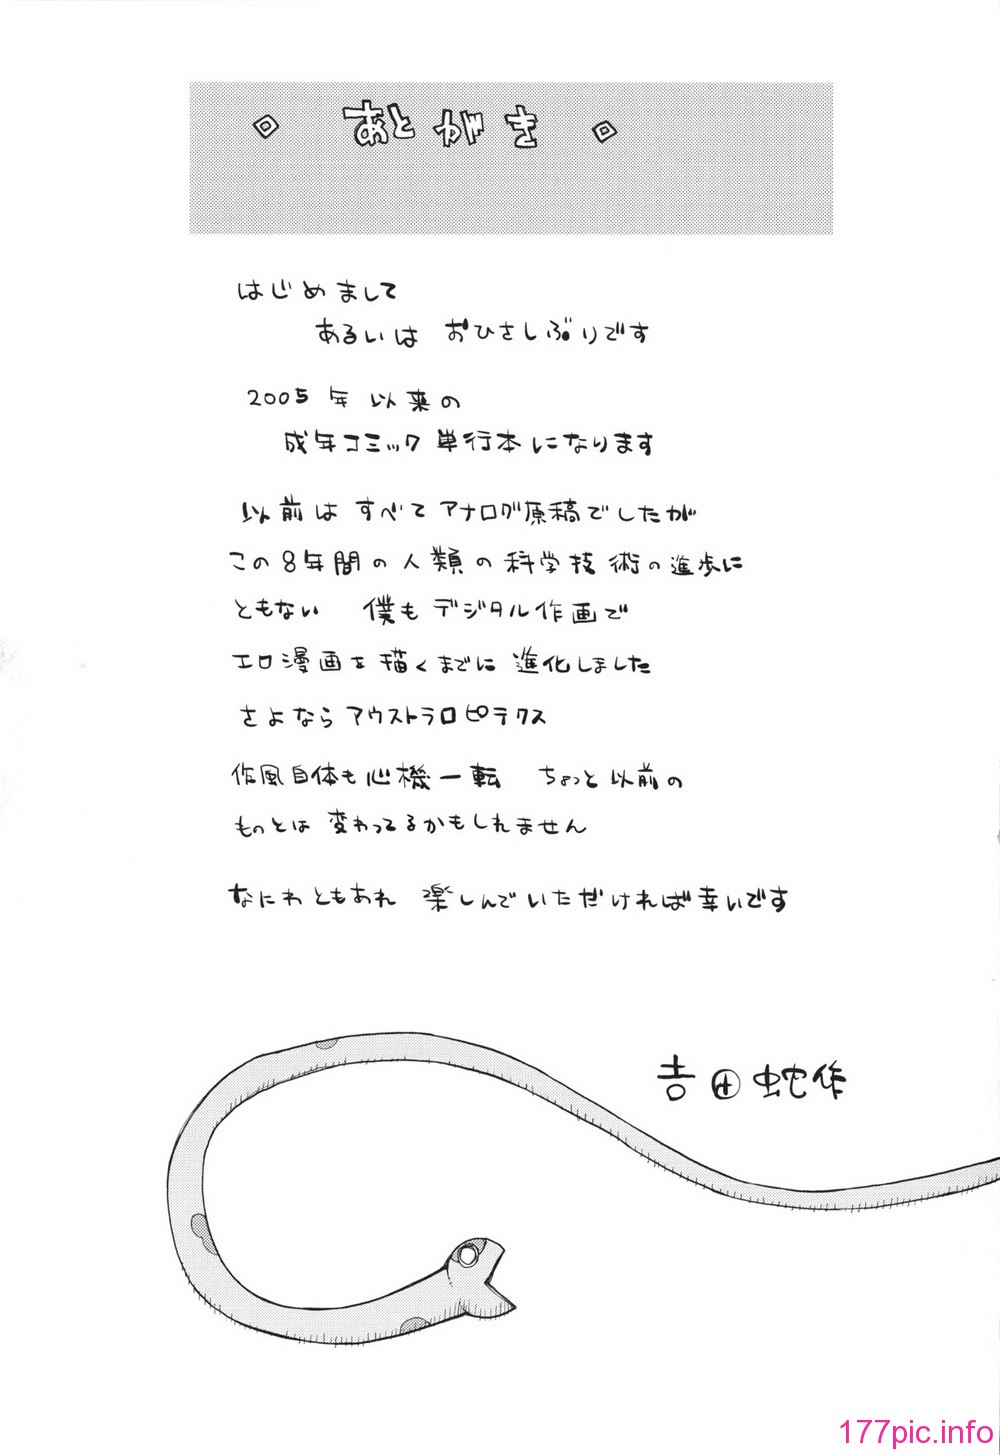 あとがき
はじめまして
あるいは おひさしぶりです
2005年以来の
成年コミック単行本になります
以前は すべて アナログ原稿でしたが
この8年間の人類の科学技術の進歩に
ともない 僕もデジタル作画で
エロ漫画を描くまでに進化しました
さよなら アウストラロピテクス
作風自体も心機一転 ちょっと以前の
ものとは 変わってるかもしれません
なにわともあれ 楽しんでいただければ幸いです
吉田蛇作
177pic.info